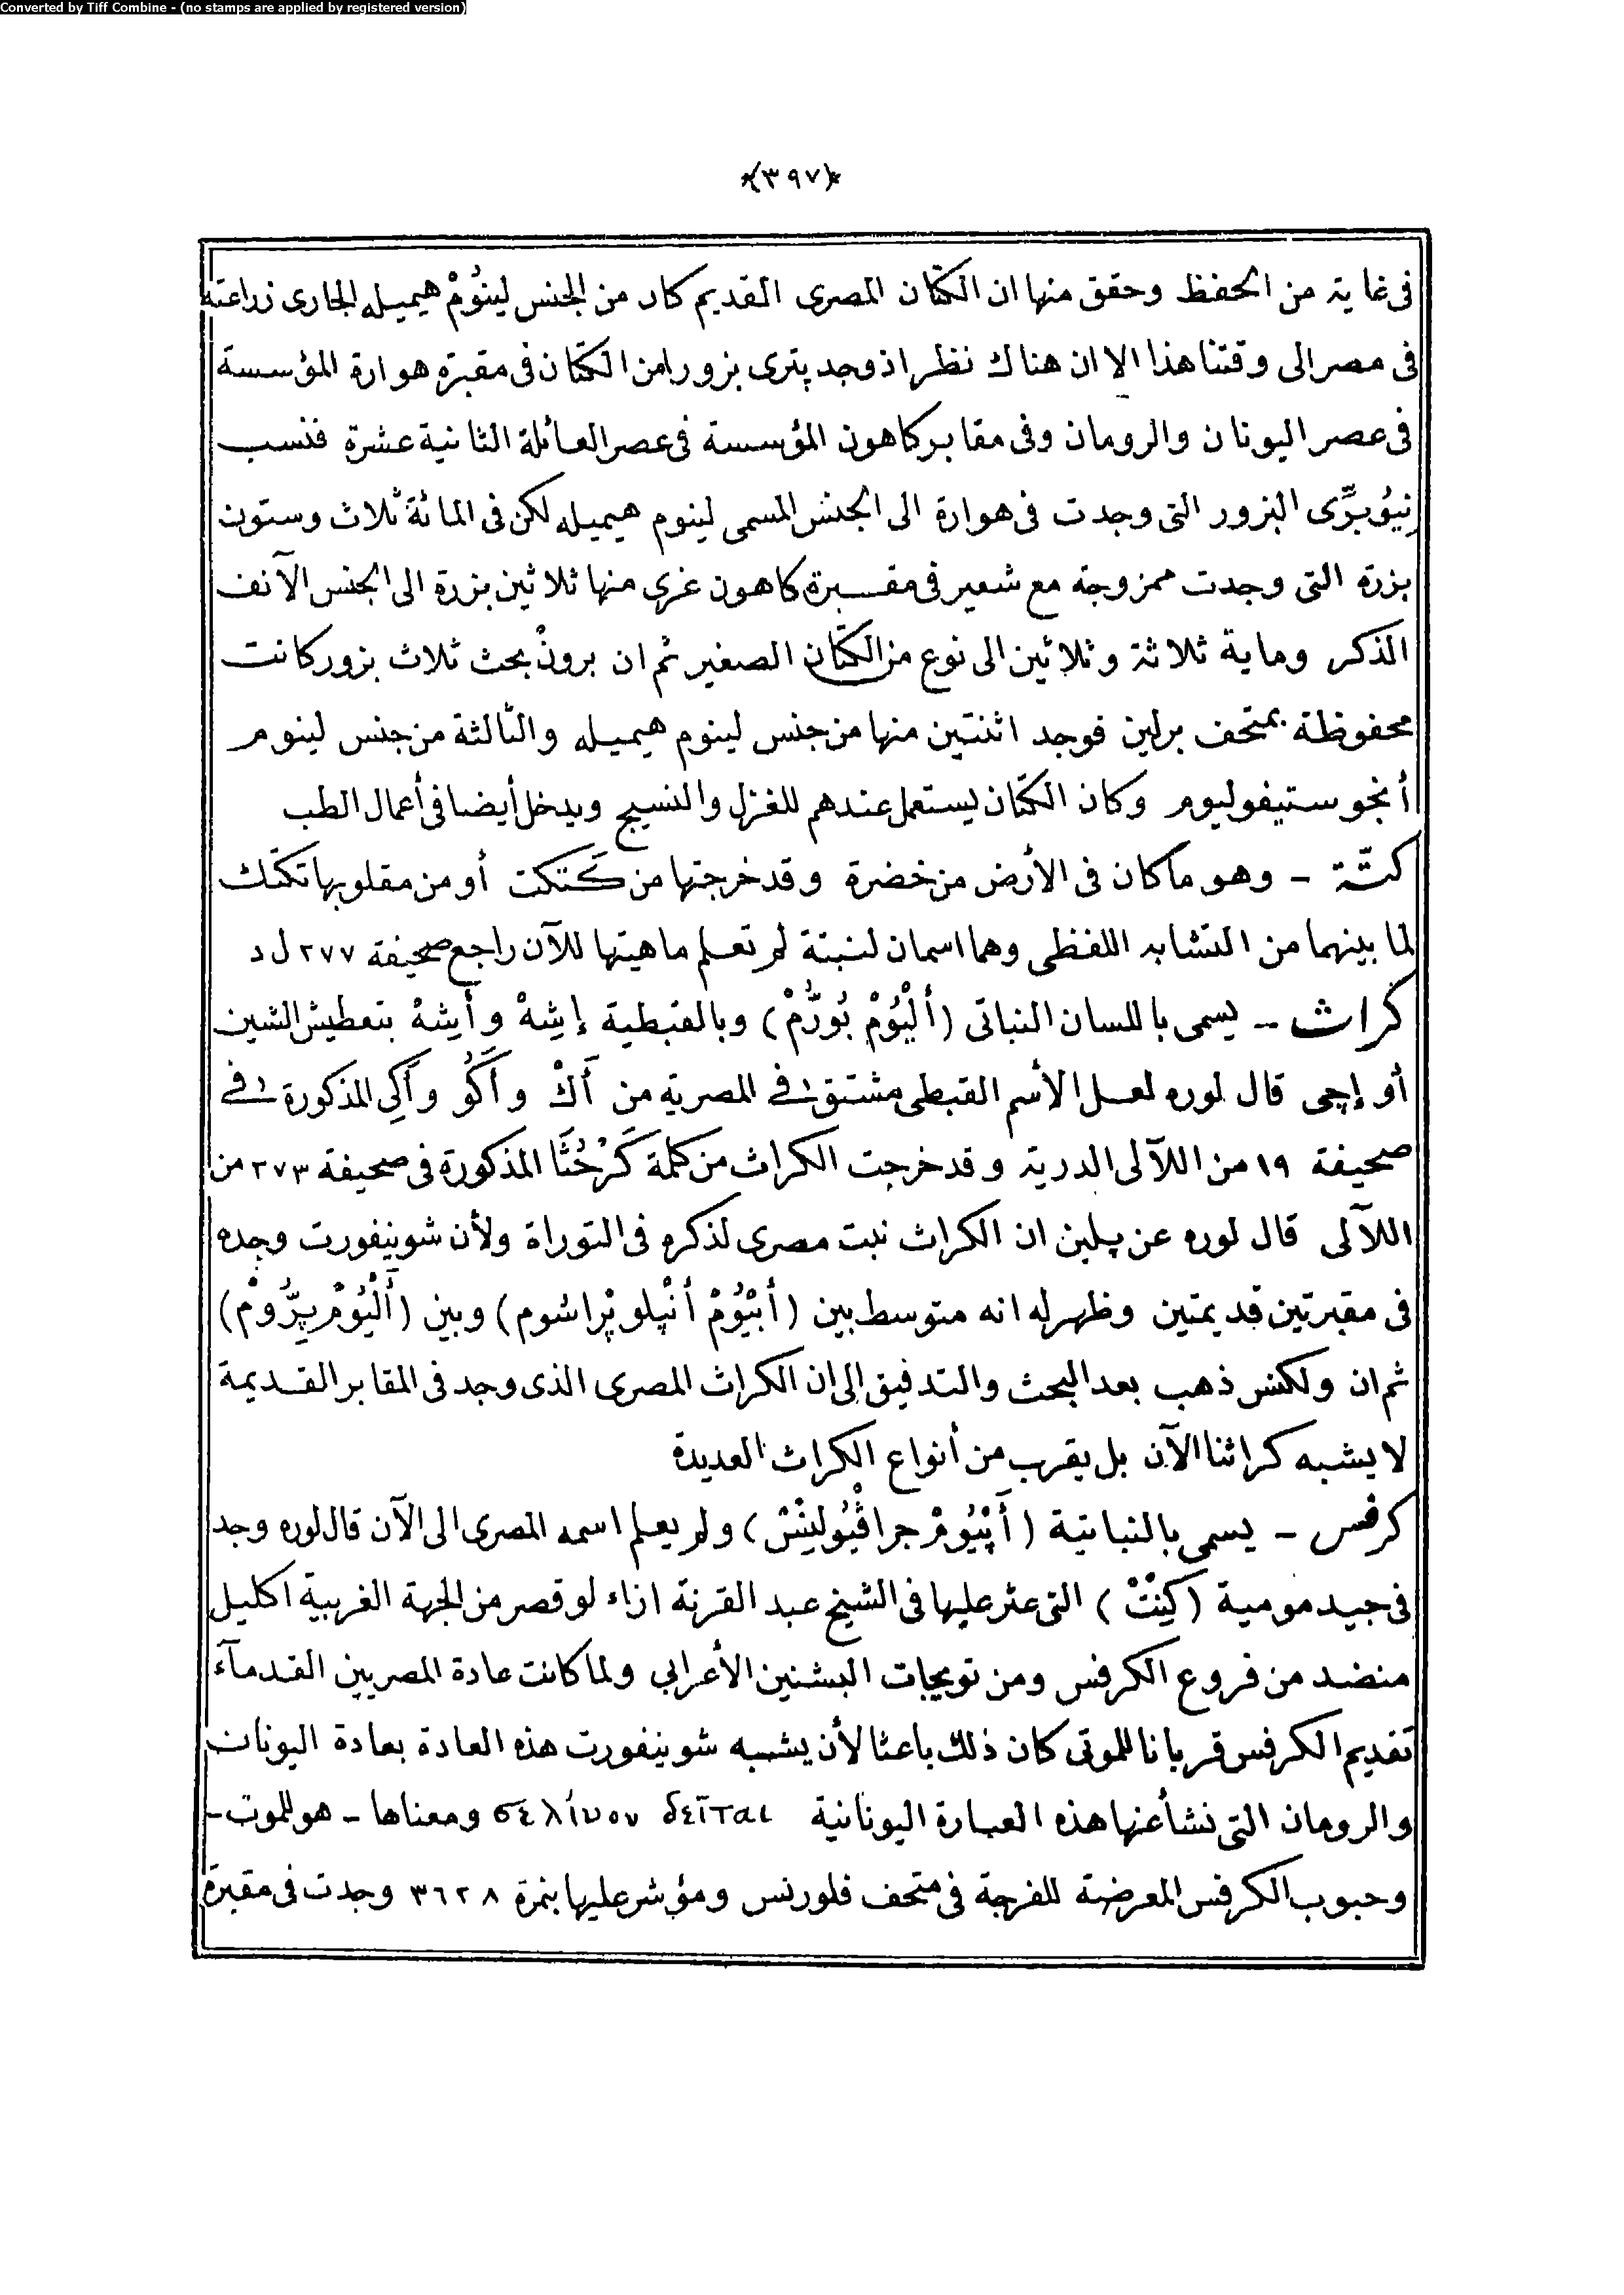 Converted by Tiff Combine - (no stamps are applied by registered version)
﴿٣٩٧﴾
فى غاية من الحفظ وحقق منها ان الكتّان المصرى القديم كان من الجنس لينُومْ هيميله الجارى زراعته
فى مصر الى وقتنا هذا الا ان هناك نظرا اذ وجد پترى بزورا من الكتّان فى مقبرة هوارة المؤسسة
فى عصر اليونان والرومان وفى مقابر كاهون المؤسسة فى عصر العائلة الثانية عشرة فنسب
نيُوبرِّى البزور التى وجدت فى هوارة الى الجنس المسمى لينوم هيميله لكن فى المائة ثلاث وستون
بزرة التى وجدت ممزوجة مع شعير فى مقبرة كاهون عزى منها ثلاثين بزرة الى الجنس الآنف
الذكر وماية ثلاثة وثلاثين الى نوع من الكتّان الصغير ثم ان برونْ بحث ثلاث بزور كانت
محفوظة بمتحف برلين فوجد اثنتين منها من جنس لينوم هيميله والثالثة من جنس لينوم
أنجوستيفوليوم وكان الكتّان يستعمل عندهم للغزل والنسيج ويدخل أيضا فى أعمال الطب
كتّة - وهو ما كان فى الأرض من خضرة وقد خرجتها من كَتكت أو من مقلوبها تكتك
لما بينهما من التشابه اللفظى وهما اسمان لنبتة لم تعلم ماهيتها للآن راجع صحيفة ٢٧٧ ل د
كراث - يسمى باللسان النباتى (أليُومْ بُورُّمْ) وبالقبطية إشِهْ وأيشِهْ بتعطيش الشين
أو إچى قال لوره لعل الأسم القبطى مشتق فى المصرية من أَكْ وأَكُو وأَكِى المذكورة فى
صحيفة ١٩ من اللآلى الدرية وقد خرجت الكراث من كلمة كَرْخُتَّا المذكورة فى صحيفة ٢٧٣ من
اللآلى قال لوره عن پلين ان الكراث نبت مصرى لذكره فى التوراة ولأن شوينفورت وجده
فى مقبرتين قديمتين وظهر له انه متوسط بين (أَبْيُومْ أَنْپلوپْراشوم) وبين (أَلْيُومْ پرُّومْ)
ثم ان ولكنس ذهب بعد البحث والتدقيق إلى ان الكراث المصرى الذى وجد فى المقابر القديمة
لا يشبه كراثنا الآن بل يقرب من أنواع الكراث العديدة
كرفس - يسمى بالنباتية (أَپْيُومْ جراڤيُولينسْ) ولم يعلم اسمه المصرى الى الآن قال لوره وجد
فى جيد مومية (كِنْتْ) التى عثر عليها فى الشيخ عبد القرنة ازاء لوقصر من الجهة الغربية اكليل
منضد من فروع الكرفس ومن تويجات البشنين الأعرابى ولما كانت عادة المصريين القدمآء
تقديم الكرفس قربانا للموتى كان ذلك باعثا لأن يشبه شوينفورت هذه العادة بعادة اليونان
والرومان التى نشأ عنها هذه العبارة اليونانية σελίνου δεῖται ومعناها - هو للموت -
وحبوب الكرفس المعرضة للفرجة فى متحف فلورنس ومؤشر عليها بنمرة ٣٦٢٨ وجدت فى مقبرة